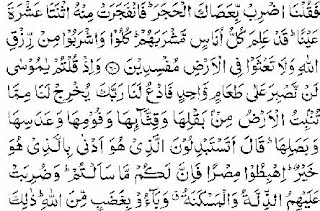 فَقُلْنَا اضْرِبْ بِّعَصَاكَ الْحَجَرَ ؕ فَانْفَجَرَتْ مِنْهُ اثْنَتَا عَشْرَةَ
عَيْنًا ؕ قَدْ عَلِمَ كُلُّ اُنَاسٍ مَّشْرَبَهُمْ ؕ كُلُوْا وَاشْرَبُوْا مِنْ رِّزْقِ
اللّٰهِ وَلَا تَعْثَوْا فِى الْاَرْضِ مُفْسِدِيْنَ ﴿۶۰﴾ وَاِذْ قُلْتُمْ يٰمُوْسٰى
لَنْ نَّصْبِرَ عَلٰى طَعَامٍ وَّاحِدٍ فَادْعُ لَنَا رَبَّكَ يُخْرِجْ لَنَا مِمَّا
تُنْۢبِتُ الْاَرْضُ مِنْۢ بَقْلِهَا وَقِثَّآئِهَا وَفُوْمِهَا وَعَدَسِهَا
وَبَصَلِهَا ؕ قَالَ اَتَسْتَبْدِلُوْنَ الَّذِىْ هُوَ اَدْنٰى بِالَّذِىْ هُوَ
خَيْرٌ ؕ اِهْبِطُوْا مِصْرًا فَاِنَّ لَكُمْ مَّا سَاَلْتُمْ ؕ وَضُرِبَتْ
عَلَيْهِمُ الذِّلَّةُ وَالْمَسْكَنَةُ ٭ وَبَآءُوْ بِغَضَبٍ مِّنَ اللّٰهِ ؕ ذٰلِكَ